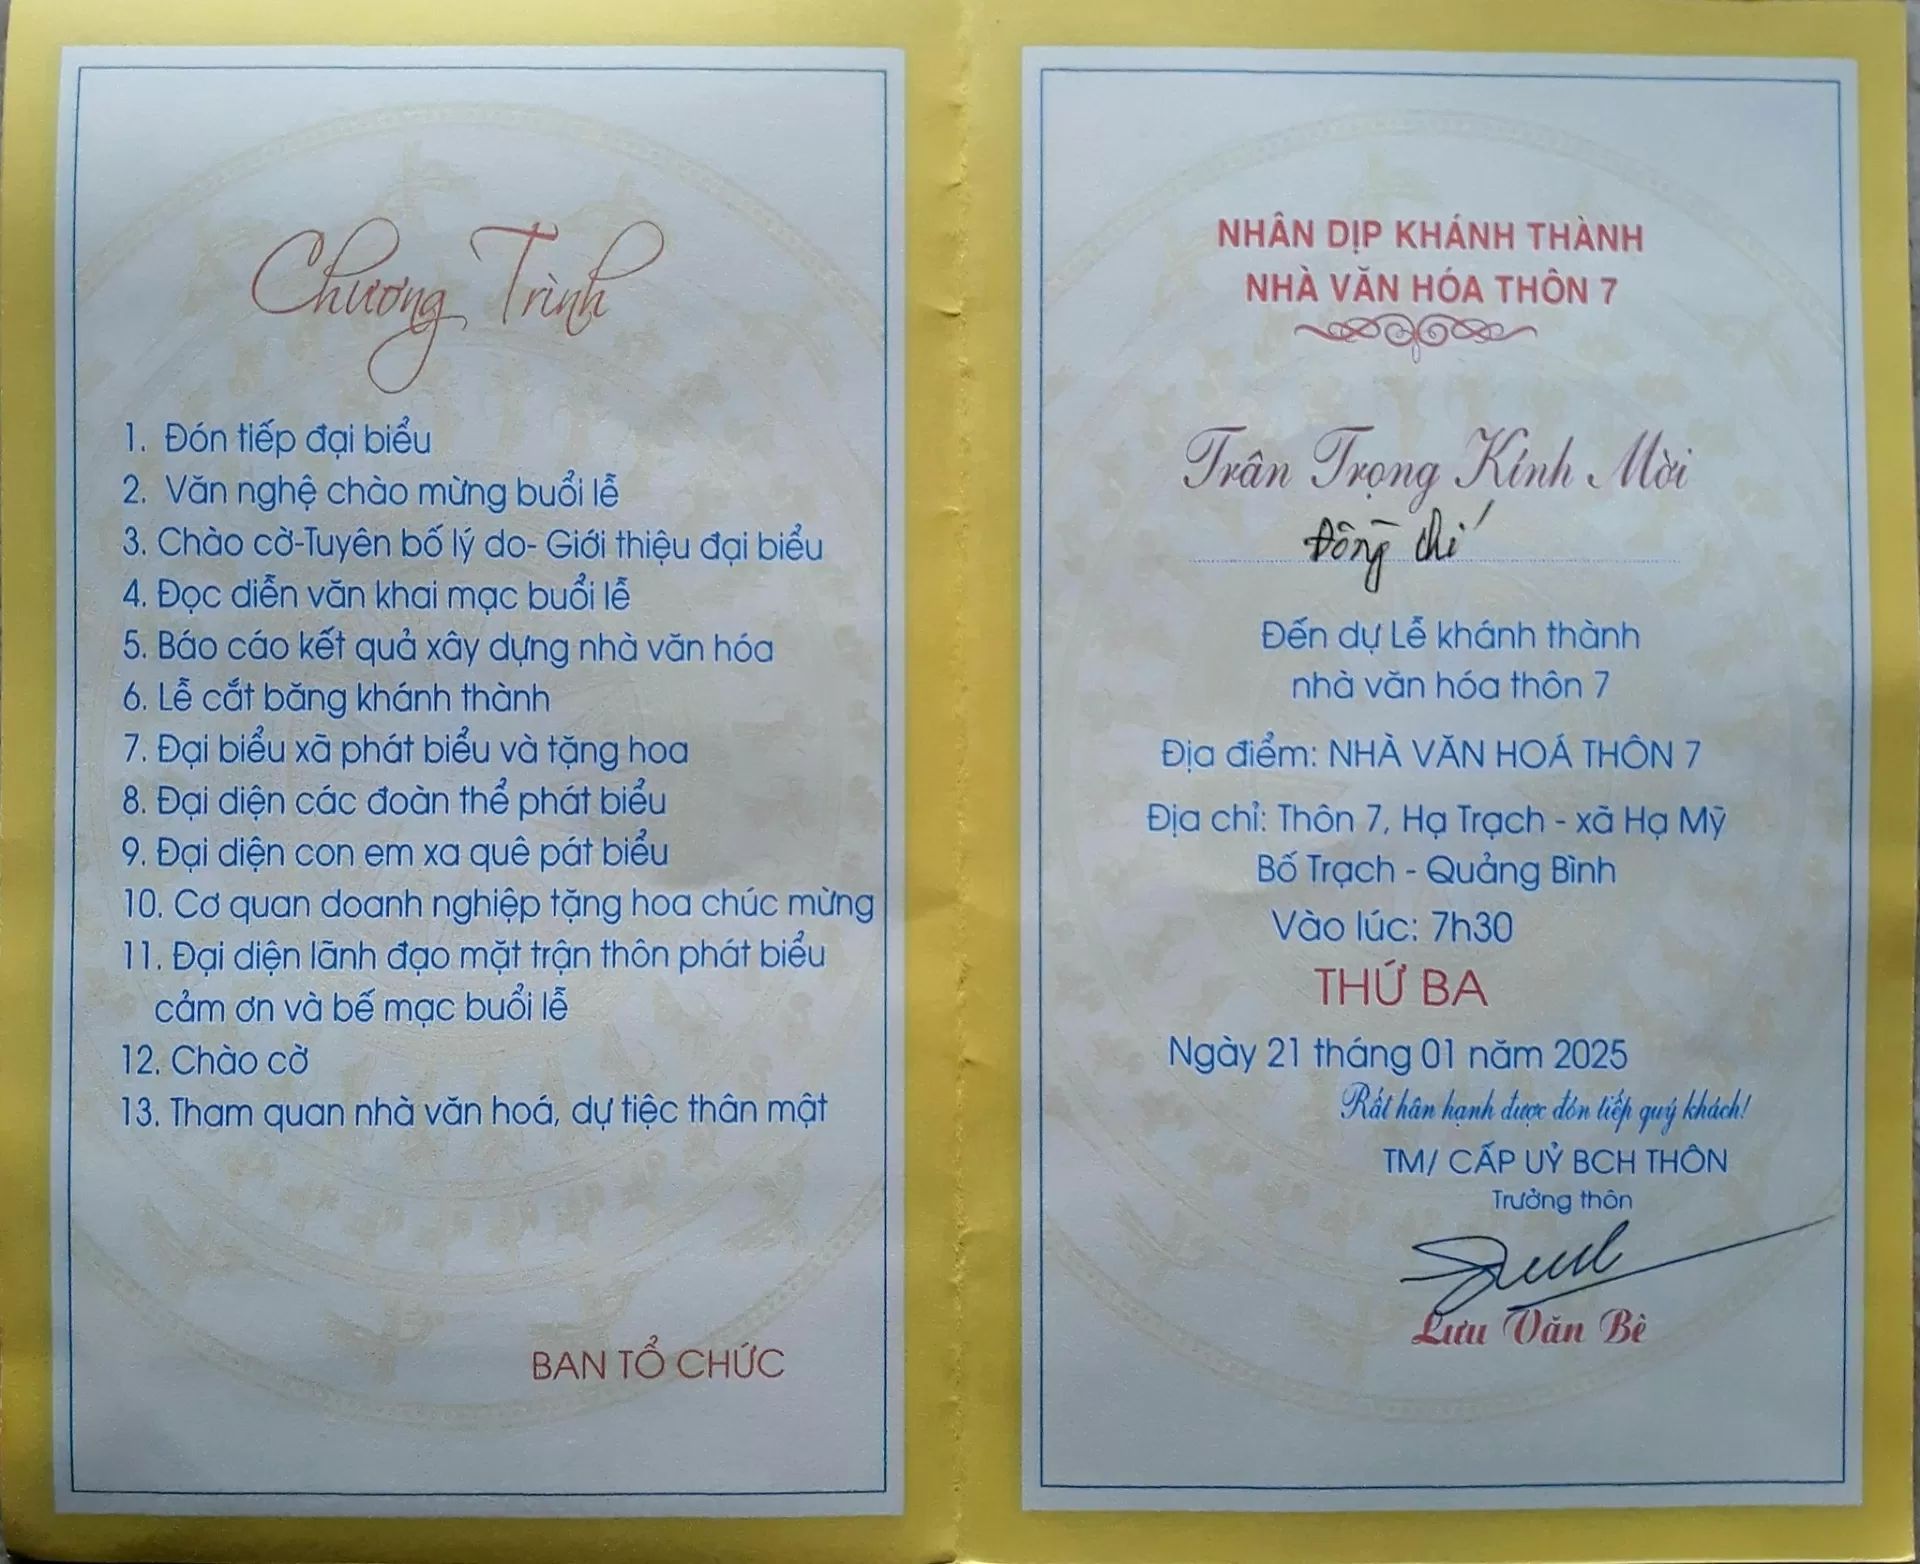 Chương Trình
1. Đón tiếp đại biểu
2. Văn nghệ chào mừng buổi lễ
3. Chào cờ-Tuyên bố lý do- Giới thiệu đại biểu
4. Đọc diễn văn khai mạc buổi lễ
5. Báo cáo kết quả xây dựng nhà văn hóa
6. Lễ cắt băng khánh thành
7. Đại biểu xã phát biểu và tặng hoa
8. Đại diện các đoàn thể phát biểu
9. Đại diện con em xa quê pát biểu
10. Cơ quan doanh nghiệp tặng hoa chúc mừng
11. Đại diện lãnh đạo mặt trận thôn phát biểu
cảm ơn và bế mạc buổi lễ
12. Chào cờ
13. Tham quan nhà văn hoá, dự tiệc thân mật
BAN TỔ CHỨC
NHÂN DỊP KHÁNH THÀNH
NHÀ VĂN HÓA THÔN 7
Trân Trọng Kính Mời
Đồng chí
Đến dự Lễ khánh thành
nhà văn hóa thôn 7
Địa điểm: NHÀ VĂN HOÁ THÔN 7
Địa chỉ: Thôn 7, Hạ Trạch - xã Hạ Mỹ
Bố Trạch - Quảng Bình
Vào lúc: 7h30
THỨ BA
Ngày 21 tháng 01 năm 2025
Rất hân hạnh được đón tiếp quý khách!
TM/ CẤP UỶ BCH THÔN
Trưởng thôn
Lưu Văn Bè